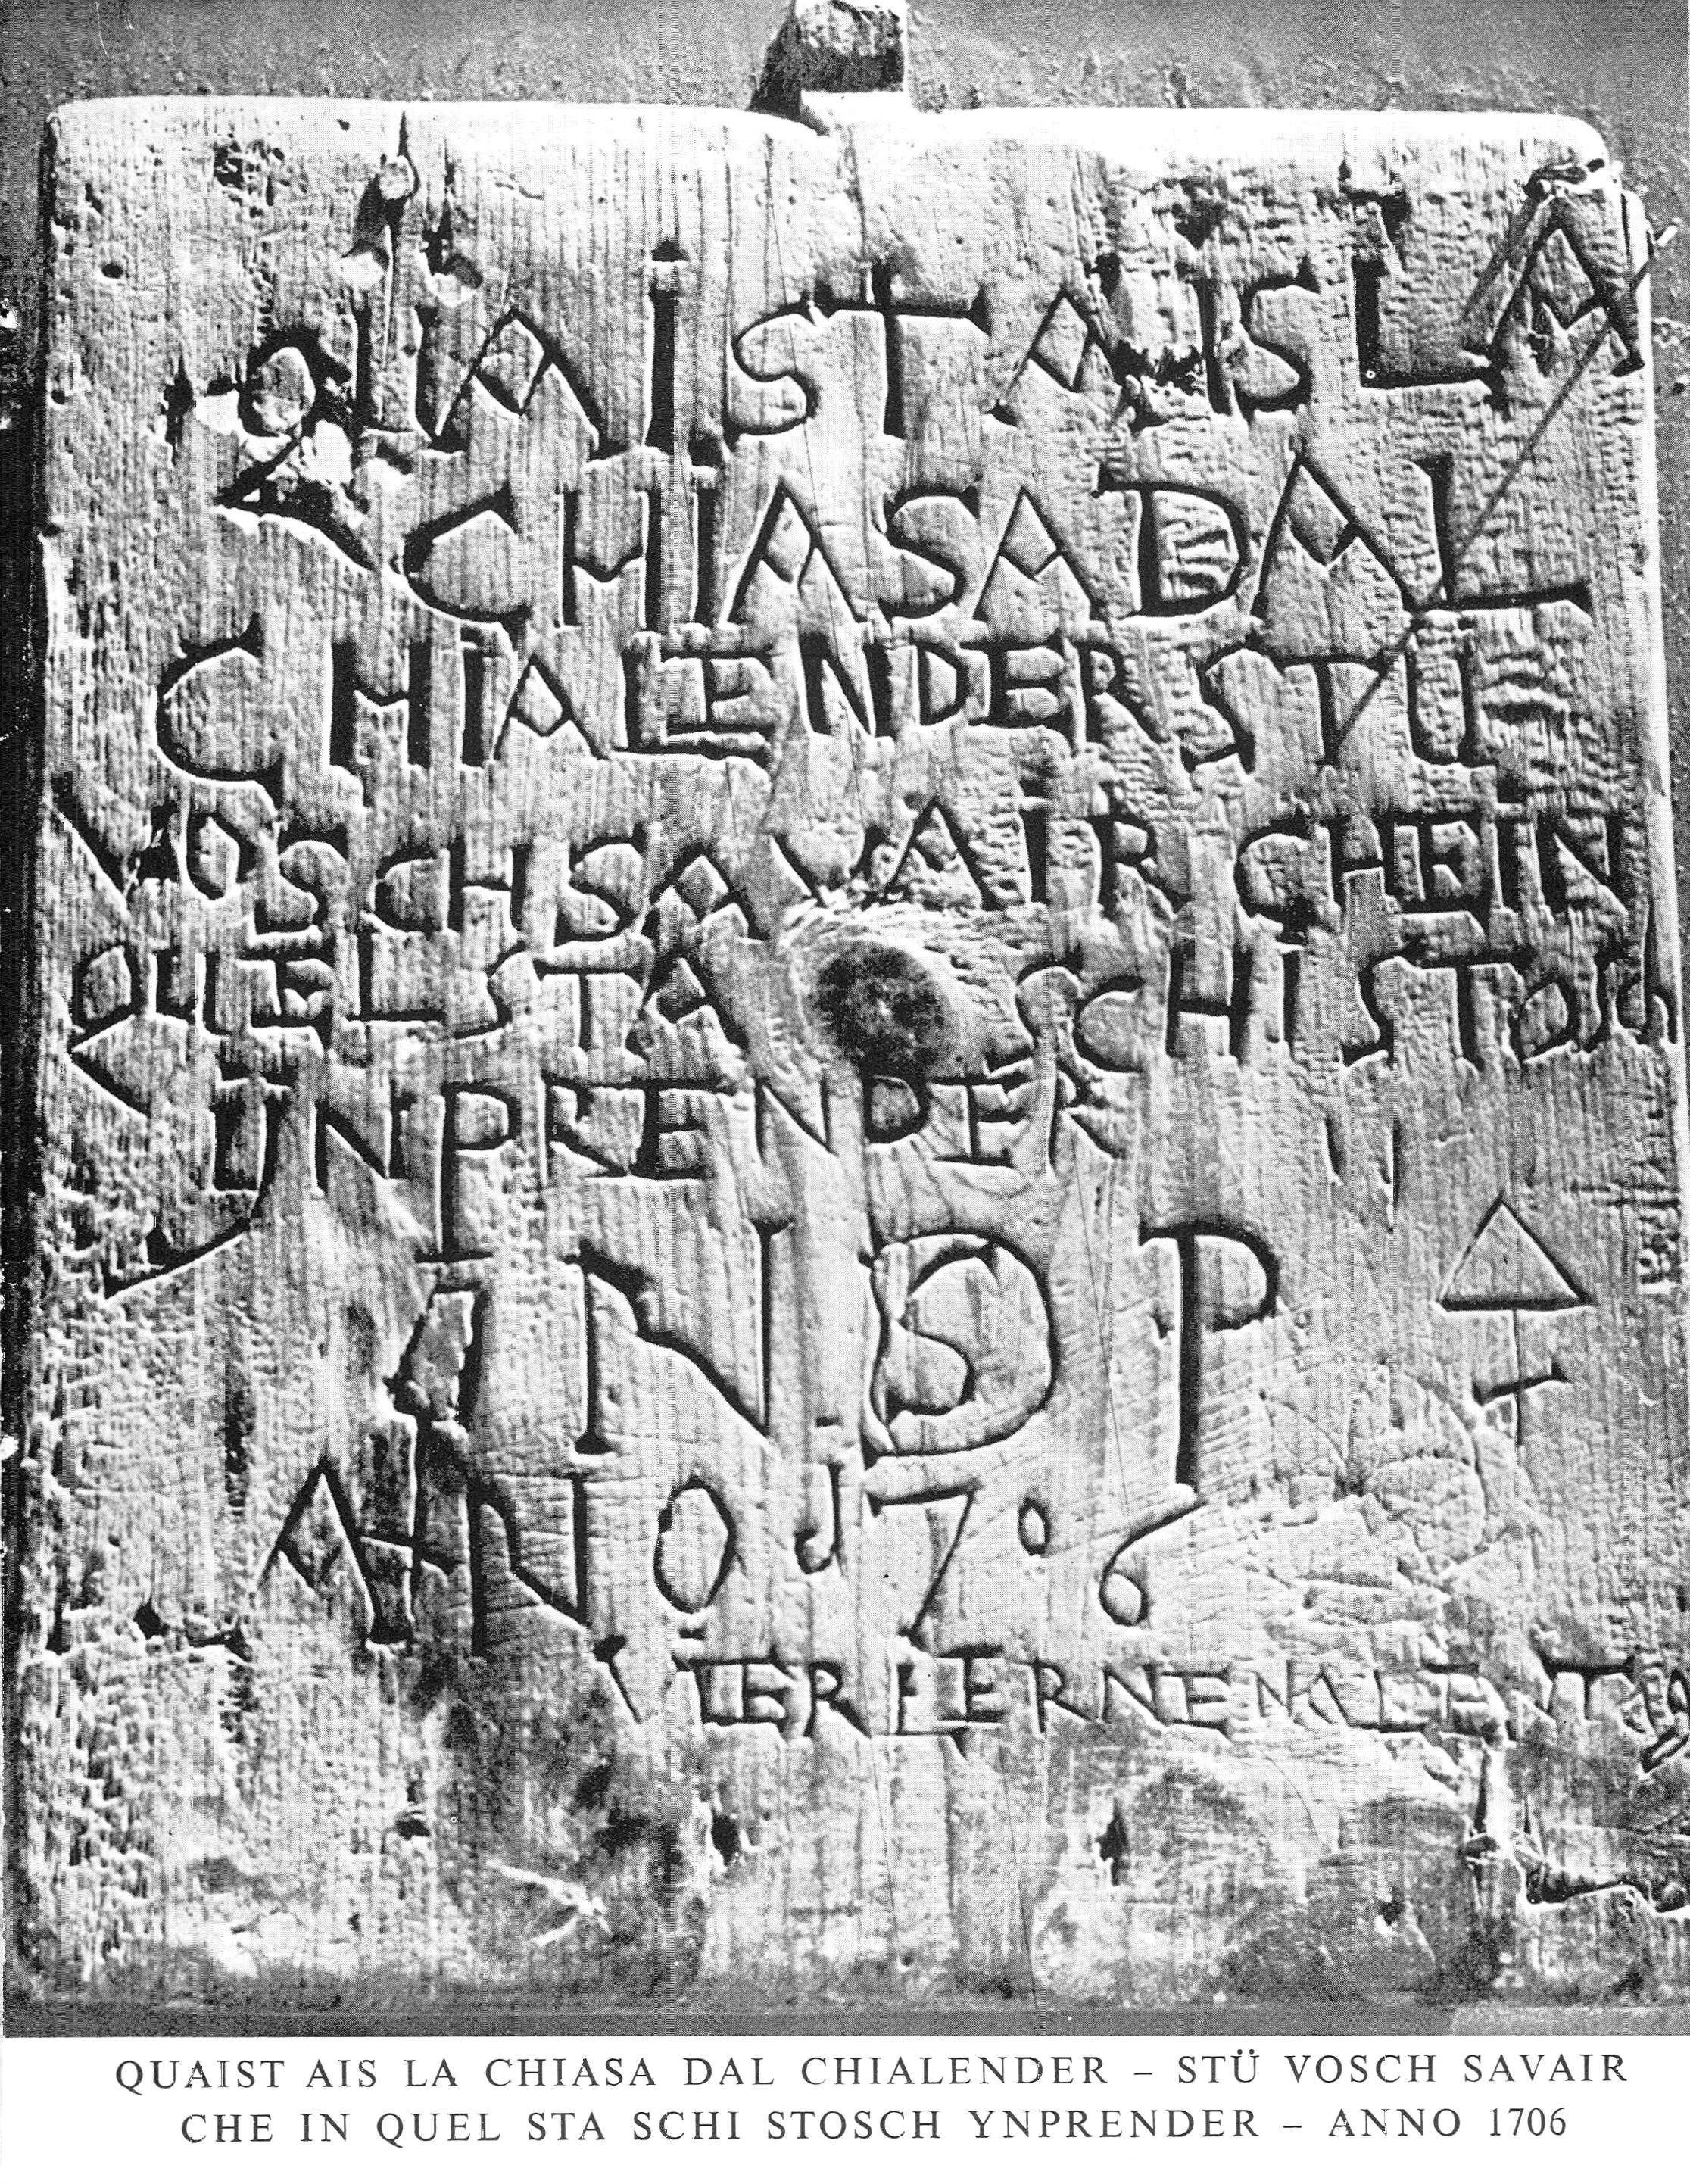 QUAIST AIS LA
CHIASA DAL
CHIALENDER STU
VOSCH SAVAIR CHE IN
QUEL STA SCHI STOSCH
YNPRENDER
P
ANO 1706
QUAIST AIS LA CHIASA DAL CHIALENDER – STÜ VOSCH SAVAIR
CHE IN QUEL STA SCHI STOSCH YNPRENDER – ANNO 1706